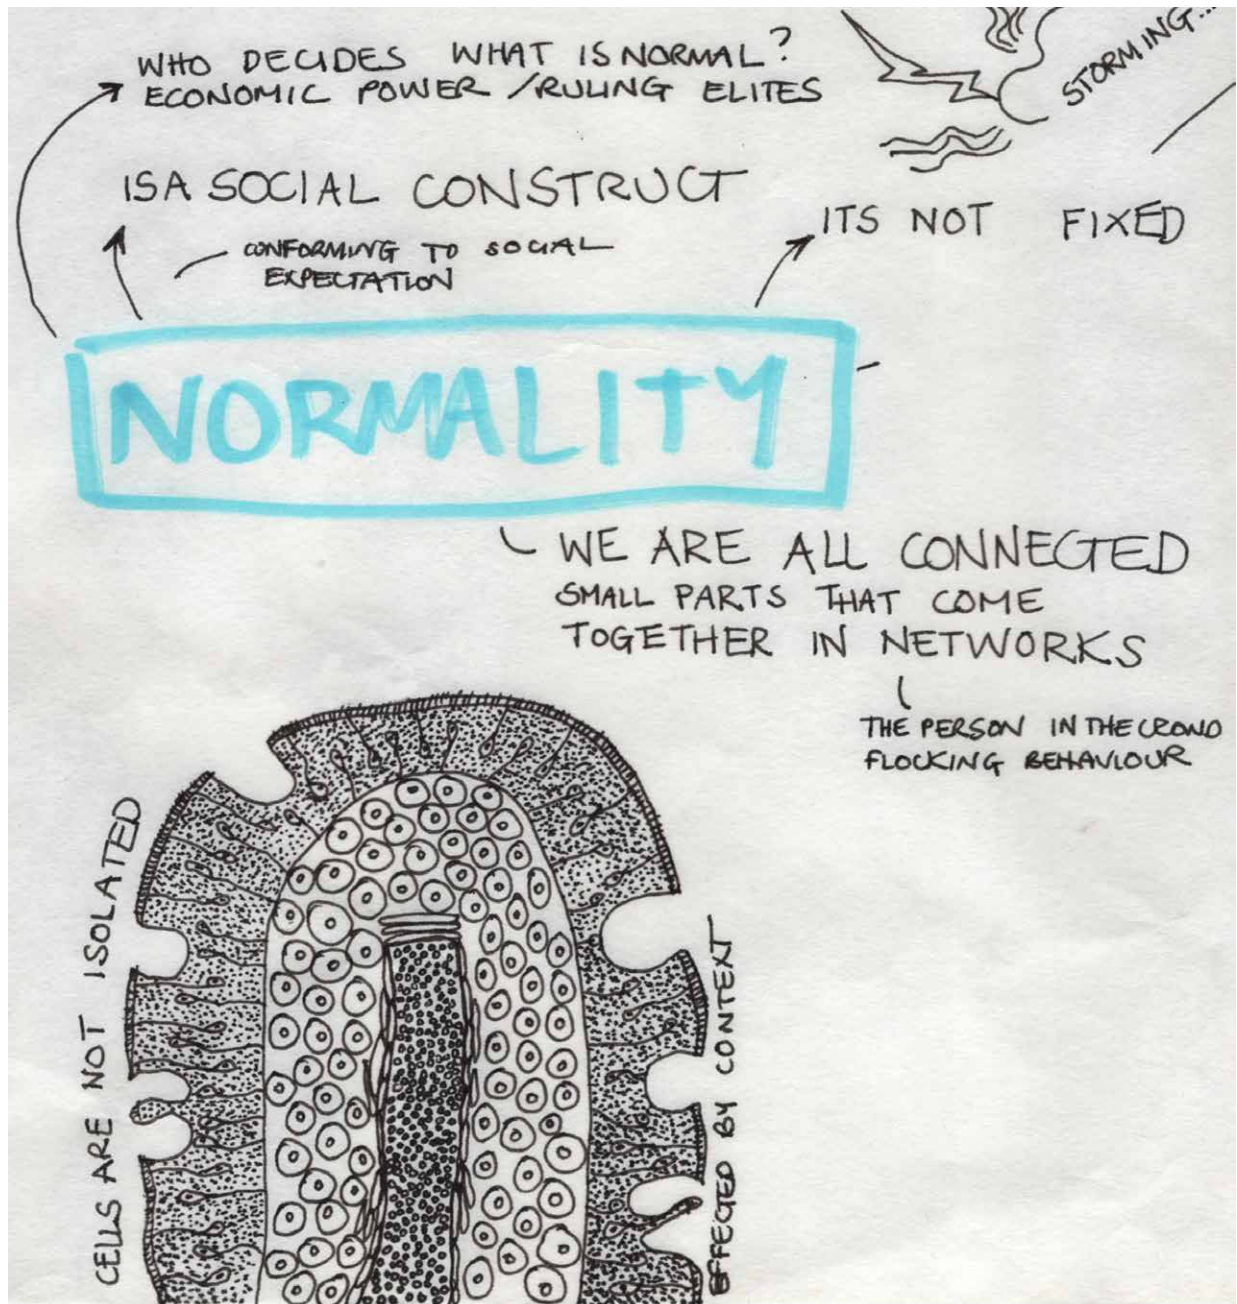 WHO DECIDES WHAT IS NORMAL?
ECONOMIC POWER / RULING ELITES
STORMING...
IS A SOCIAL CONSTRUCT
ITS NOT FIXED
CONFORMING TO SOCIAL
EXPECTATION
NORMALITY
WE ARE ALL CONNECTED
SMALL PARTS THAT COME
TOGETHER IN NETWORKS
THE PERSON IN THE CROWD
FLOCKING BEHAVIOUR
CELLS ARE NOT ISOLATED
EFFECTED BY CONTEXT